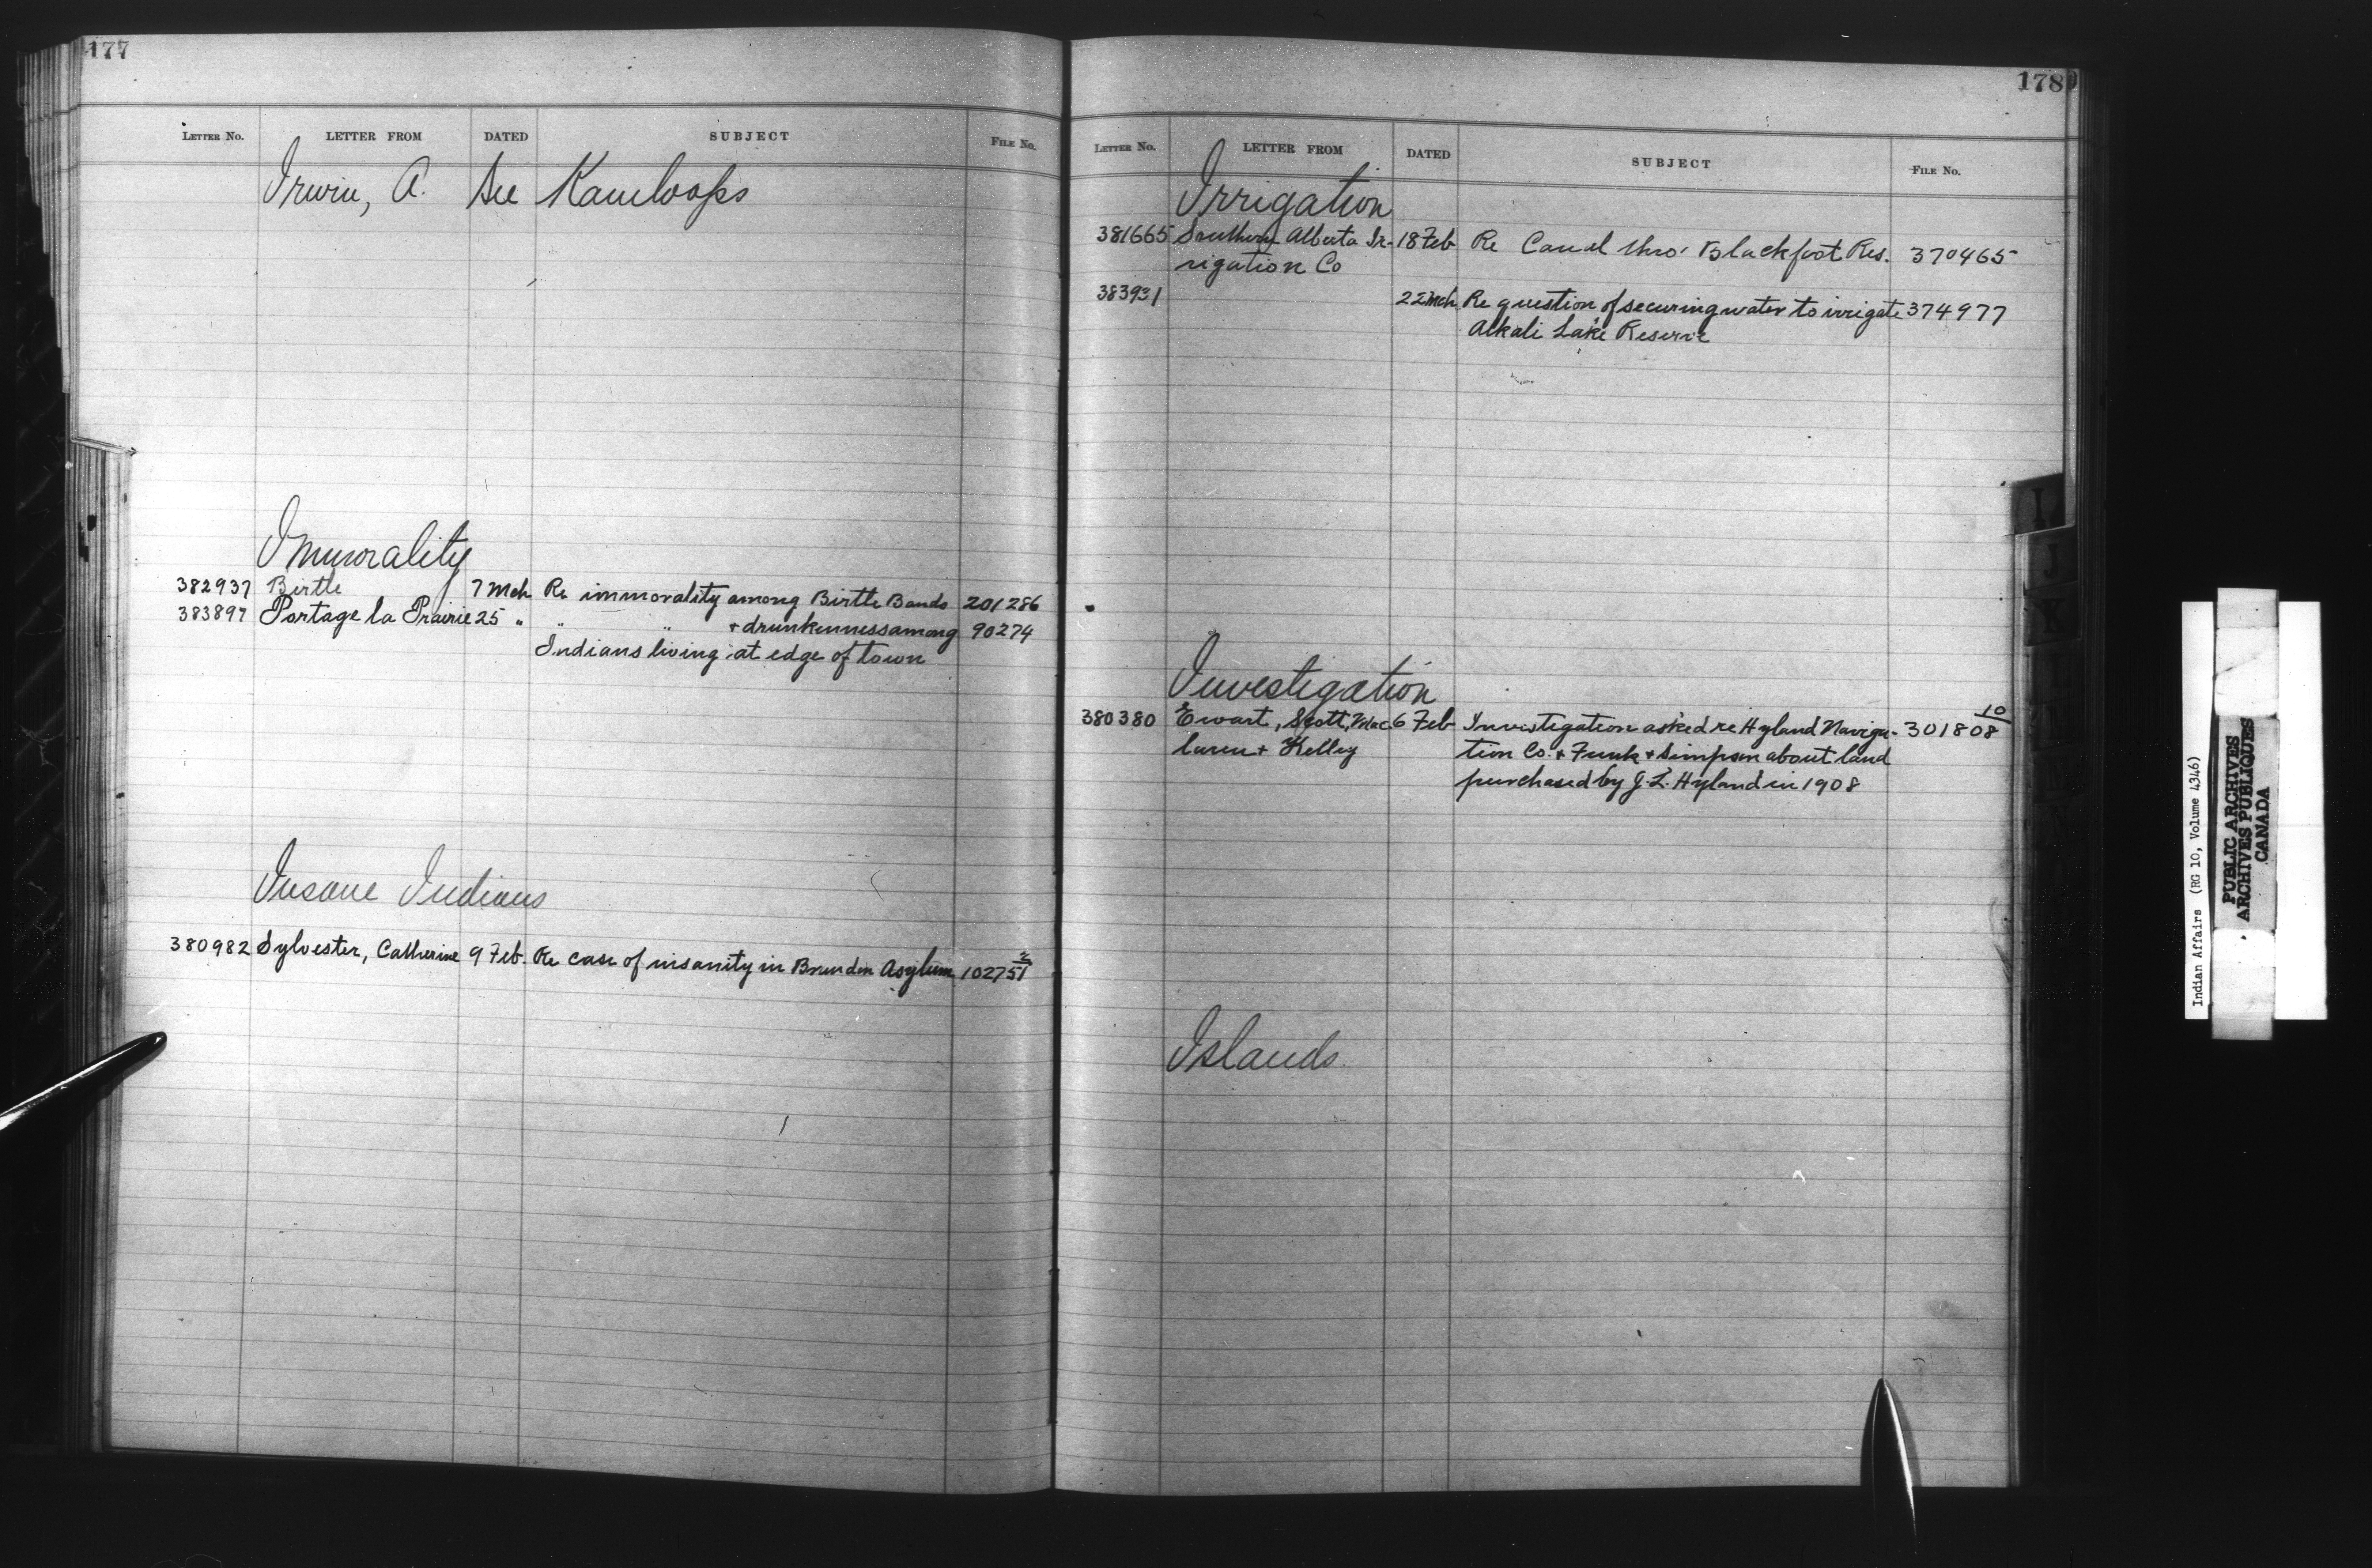 177
LETTER NO. LETTER FROM DATED SUBJECT FILE NO.
Irwin, A. See Kamloops
Immorality
382937 Birtle 7 Mch Re immorality among Birtle Bands 201286
383897 Portage la Prairie 25 " " " + drunkenness among 90274
Indians living at edge of town
Insane Indians
380982 Sylvester, Catherine 9 Feb. Re case of insanity in Brandon Asylum 102751 2
178
LETTER NO. LETTER FROM DATED SUBJECT FILE NO.
Irrigation
381665 Southern Alberta Ir- 18 Feb Re Canal thro' Blackfoot Res. 370465
rigation Co
383931 22 Mch Re question of securing water to irrigate 374977
Alkali Lake Reserve
Investigation
380380 Ewart, Scott, Mac 6 Feb Investigation asked re Hyland Naviga- 301808 10
laren + Kelley tion Co. + Funk + Simpson about land
purchased by J. L. Hyland in 1908
Islands
I
J
K
L
Indian Affairs (RG 10, Volume 4346)
PUBLIC ARCHIVES
ARCHIVES PUBLIQUES
CANADA